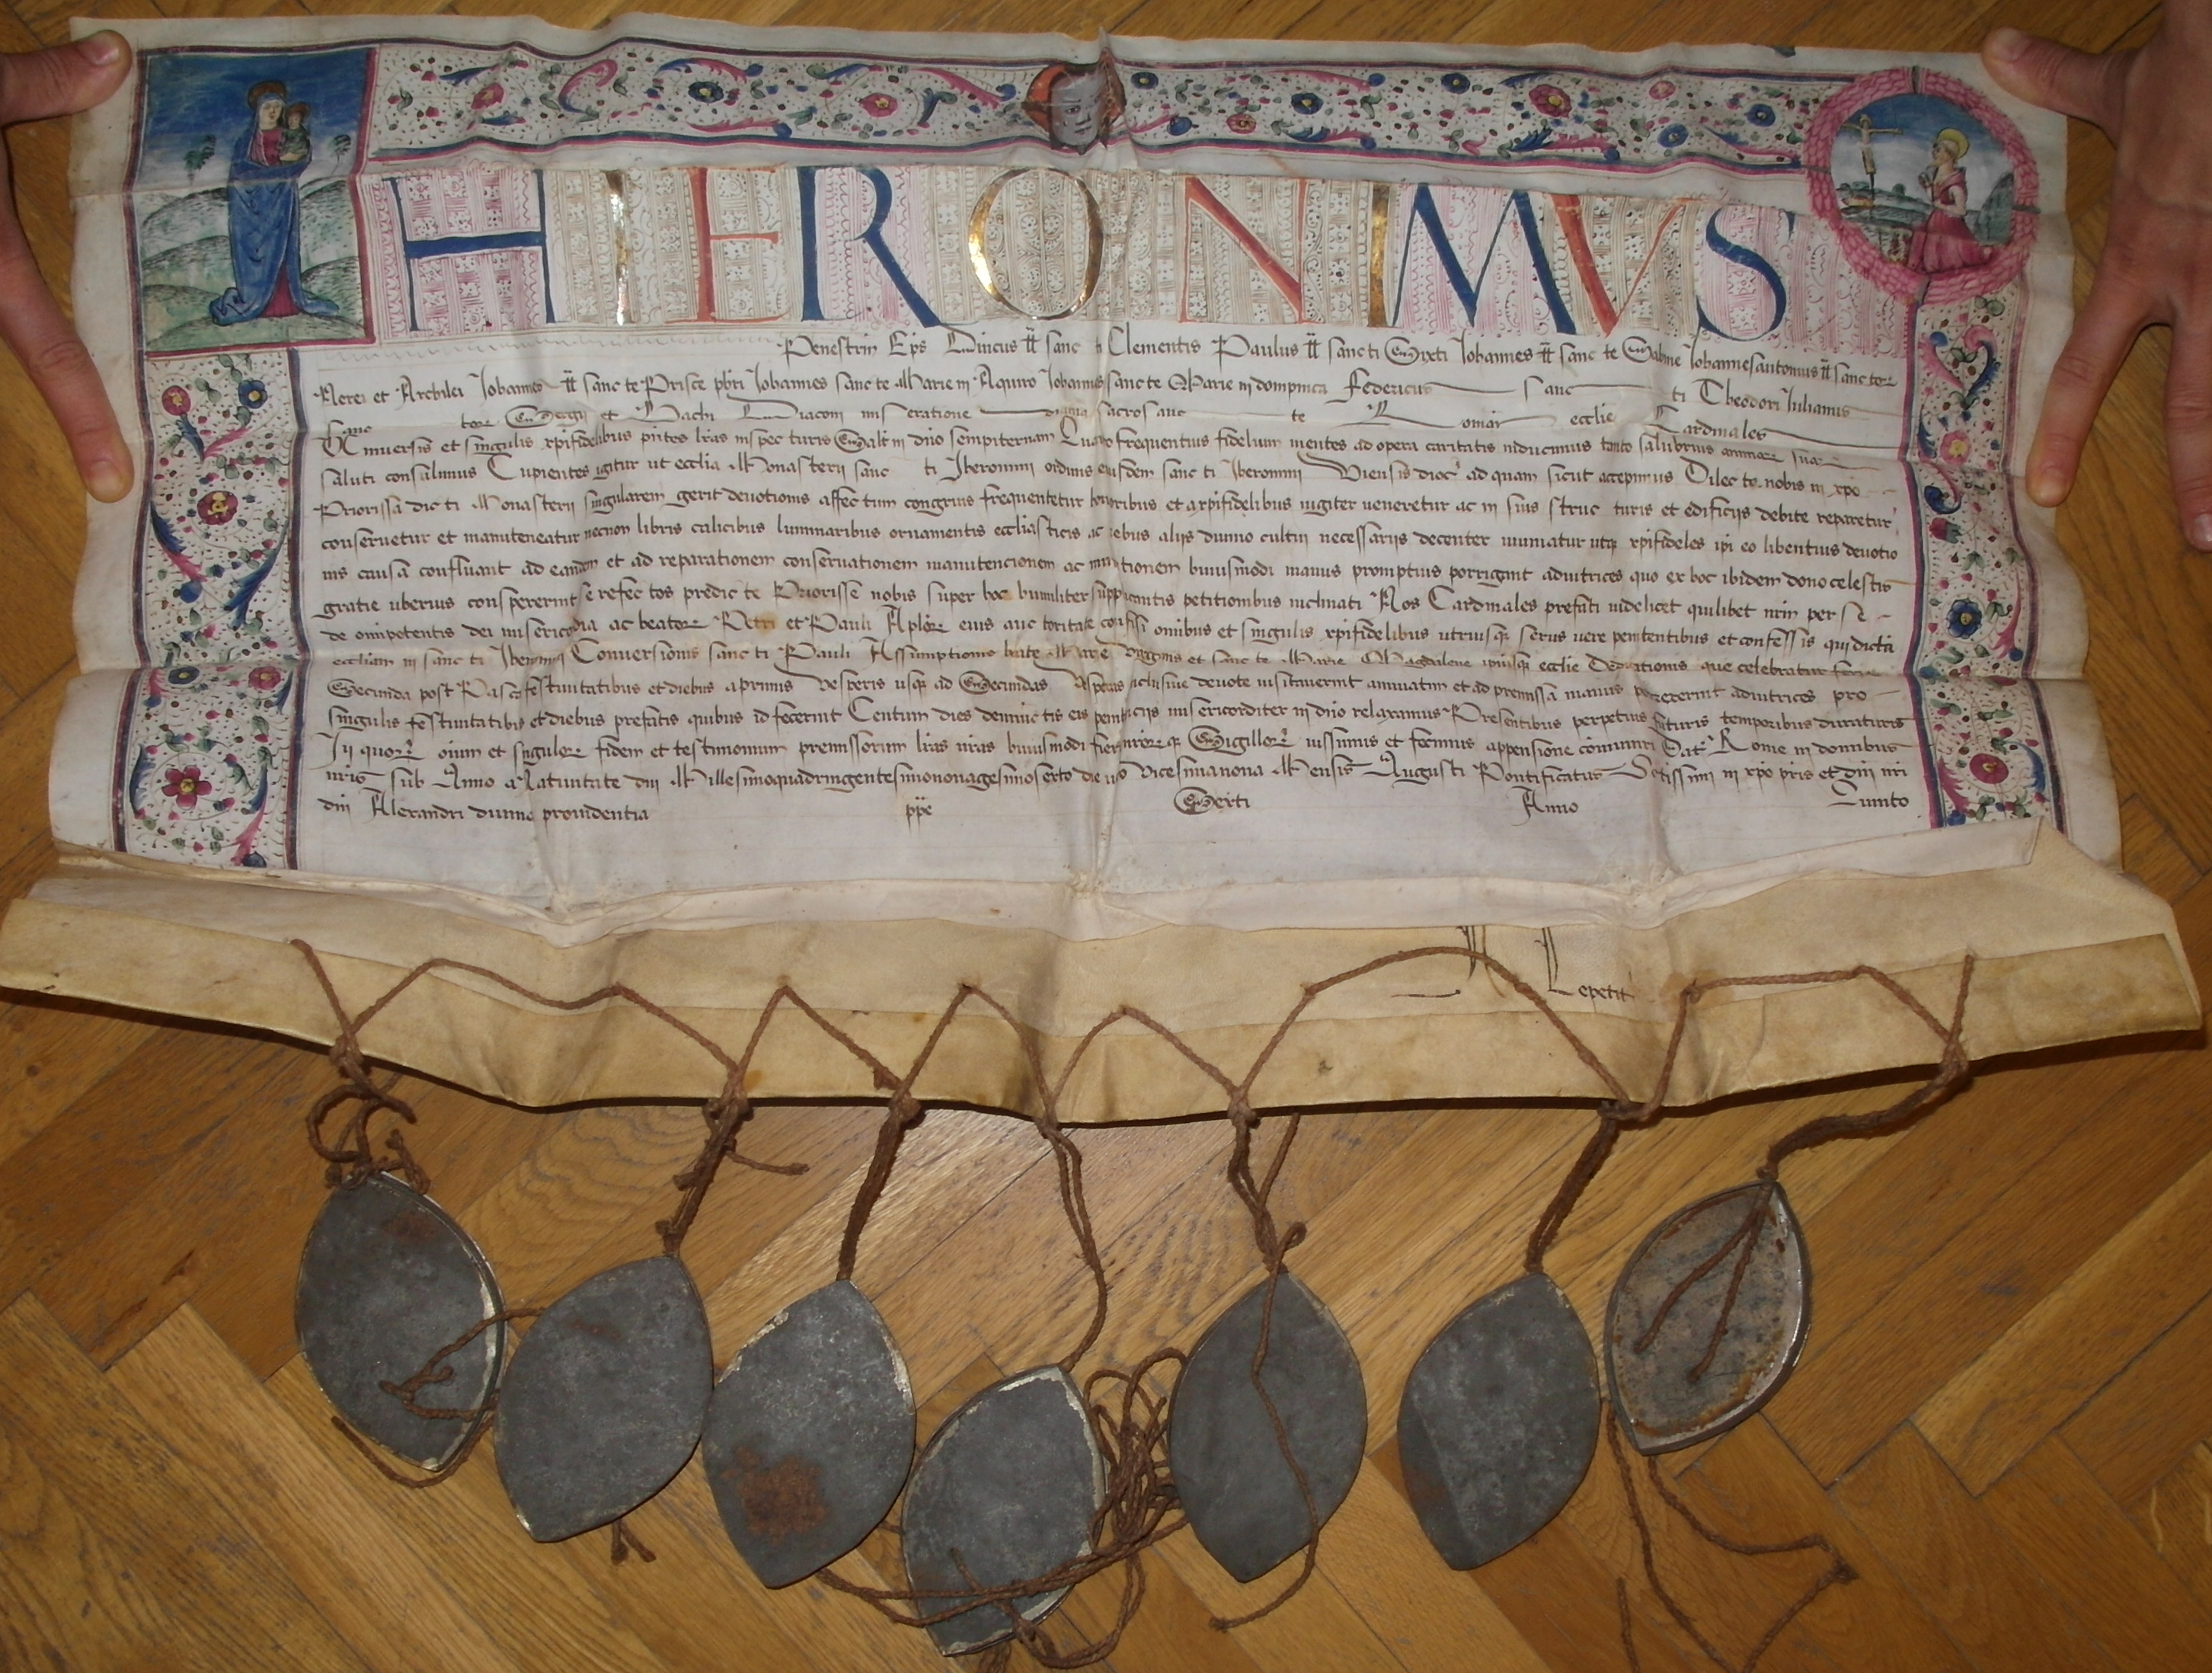 HIERONIMVS
Penestrin Eps Dnicus tt sanc ti Clementis Paulus tt sancti Sixti Iohannes tt sanc te Sabine Iohannesantonius tt sanctor
Nerei et Archilei Iohannes tt sanc te Prisce pbri Iohannes sanc te Marie in Aquiro Iohannes sanc te Marie in dompnica Federicus sanc ti Theodori Iulianus
sanc tor Sergii et Bachi Diaconi miseratione diuina sacrosanc te Romane ecclie Cardinales
Uniuersis et singulis xpifidelibus pntes lras inspec turis Saltm in dno sempiternam Quanto frequentius fidelium mentes ad opera caritatis inducimus tanto salubrius animar suar
saluti consulimus Cupientes igitur ut ecclia Monasterii sanc ti Iheronimi ordinis eiusdem sanc ti Iheronimi dioc ad quam sicut accepimus Dilec ta nobis in xpo
Priorissa dic ti Monasterii singularem gerit deuotionis affec tum congruis frequentetur honoribus et a xpifidelibus iugiter veneretur ac in suis struc turis et edificijs debite reparetur
conseruetur et manuteneatur necnon libris calicibus luminaribus ornamentis eccliasticis ac rebus alijs diuino cultui necessarijs decenter muniatur utq xpifideles ipi eo libentius deuotio
nis causa confluant ad eandem et ad reparationem conseruationem manutencionem ac munitionem huiusmodi manus promptius porrigant adiutrices quo ex hoc ibidem dono celestis
gratie uberius conspexerint se refec tos predic te Priorisse nobis super hoc humiliter supplicantis petitionibus inclinati Nos Cardinales prefati videlicet quilibet nrm per se
de omipotentis dei misericordia ac beator Petri et Pauli Aplor eius auc toritate confisi omibus et singulis xpifidelibus utriusq sexus vere penitentibus et confessis qui dicta
eccliam in sanc ti Iheronimi Conuersionis sanc ti Pauli Assumptionis beate Marie Virginis et sanc te Marie Magdalene ipsiusq ecclie Dedicationis que celebratur feria
Secunda post Pasca festiuitatibus et diebus a primis vesperis usq ad Secundas vesperas inclusiue deuote uisitauerint annuatim et ad premissa manus porrexerint adiutrices pro
singulis festiuitatibus et diebus prefatis quibus id fecerint Centum dies de iniunc tis eis penitencijs misericorditer in dno relaxamus Presentibus perpetuis futuris temporibus duraturis
In quor oium et singulor fidem et testimonium premissorum lras nras huiusmodi fieri nrorq Sigillor iussimus et fecimus appensione comuniri Dat Rome in domibus
nris sub Anno a Natiuitate dni Millesimoquadringentesimononagesimosexto die vero vicesimanona Mensis Augusti Pontificatus Sctissimi in xpo pris et dni nri
dni Alexandri diuina prouidentia ppe Sexti Anno Quinto
Lepetit